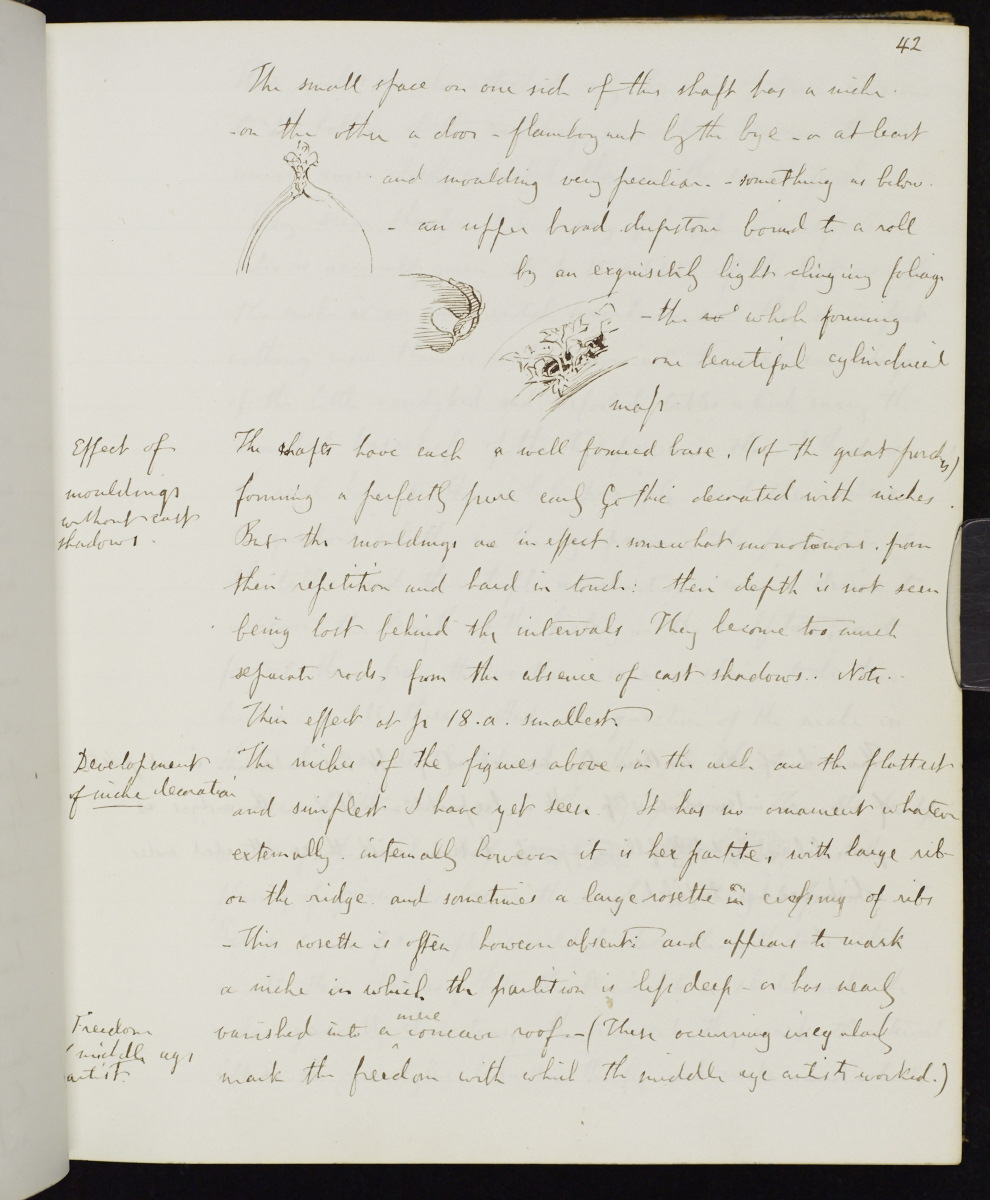 42
The small space on one side of this shaft has a niche.
- on the other a door - flamboyant by the bye - or at least
and moulding very peculiar. - something as below.
- an upper broad dripstone bound to a roll
by an exquisitely light clinging foliage
- the whole forming
one beautiful cylindrical
mass
Effect of
mouldings
without cast
shadows.
The shafts have each a well formed base, (of the great porches)
forming a perfectly pure early Gothic decorated with niches.
But the mouldings are in effect somewhat monotonous, from
their repetition and hard in touch: their depth is not seen
being lost behind the intervals They become too much
separate rods, from the absence of cast shadows.. Note..
Their effect at p 18.a. smallest
Development
of niche decoration
The niches of the figures above, in the arch are the flattest
and simplest I have yet seen. It has no ornament whatever
externally. internally however it is hexpartite, with large rib
on the ridge. and sometimes a large rosette in crossing of ribs
- This rosette is often however absent: and appears to mark
a niche in which the partition is less deep - or has nearly
vanished into a mere concave roof. - (These occurring irregularly
mark the freedom with which the middle age artists worked.)
Freedom
middle age
artist.